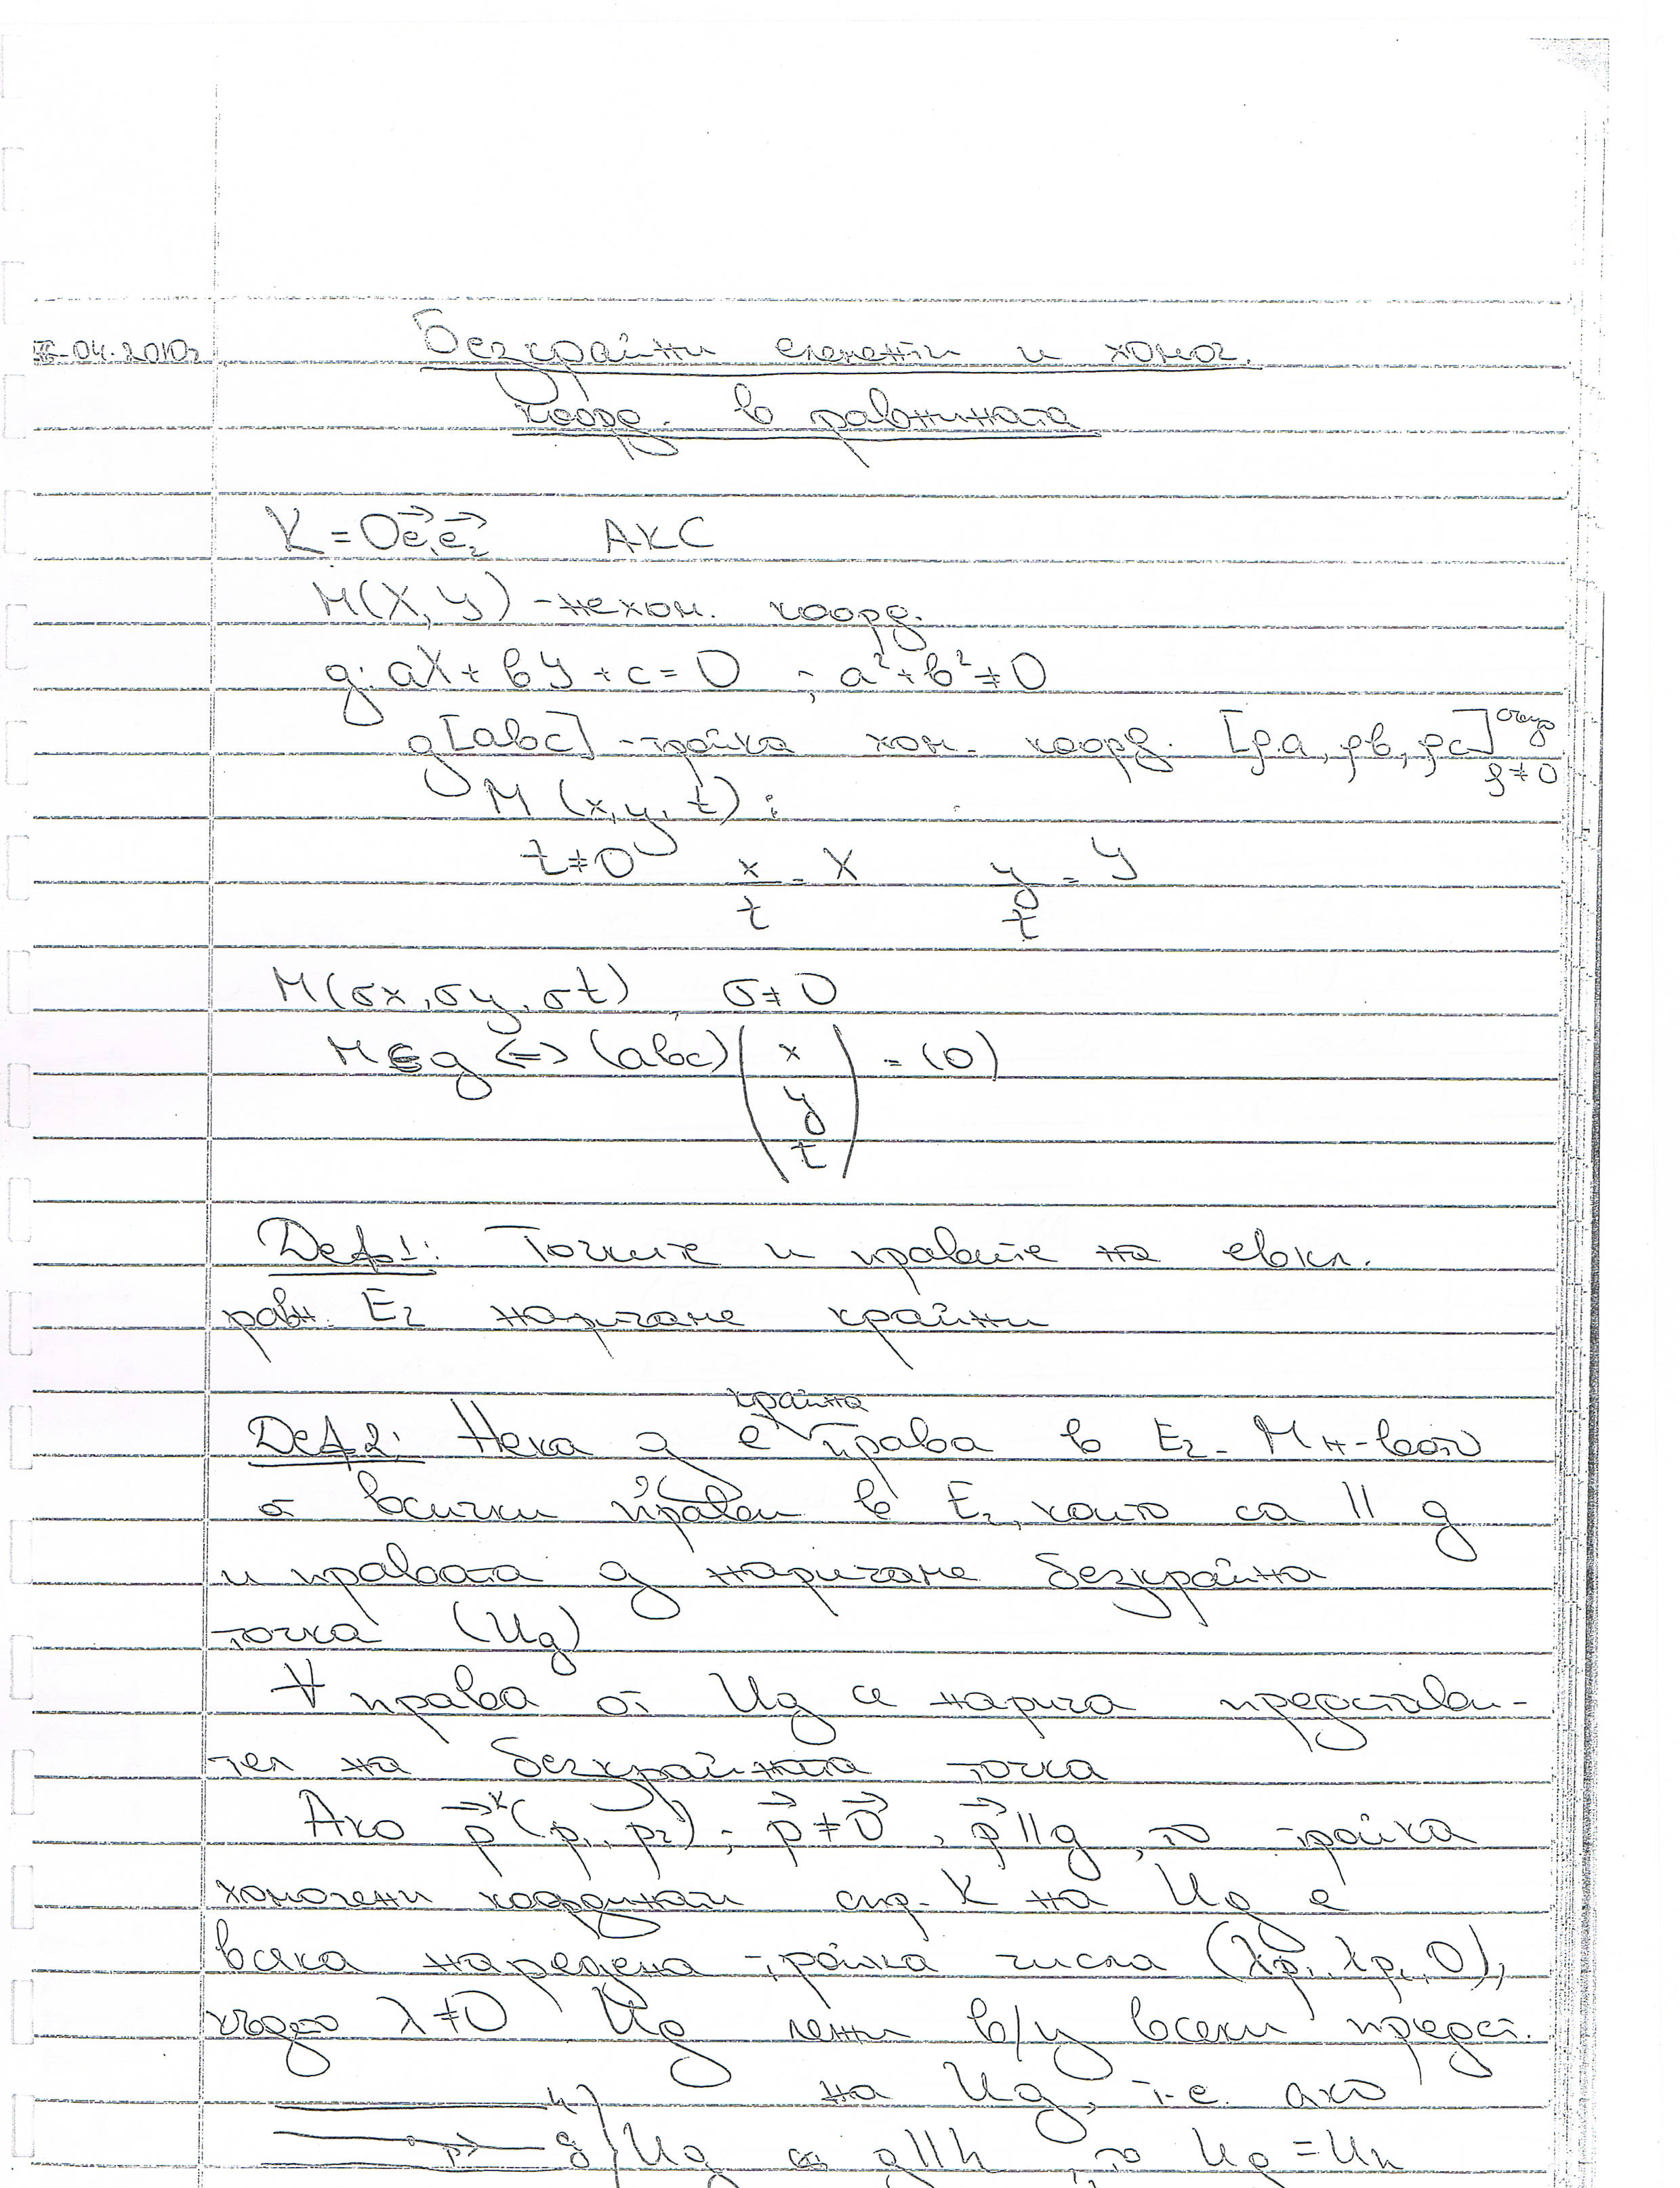 04.2010г.
Безкрайни елементи и хомог.
коорд. в равнината
K = Oe⃗₁e⃗₂ АКС
M(X, Y) - нехом. коорд.
g: aX + bY + c = 0 ; a² + b² ≠ 0
g[abc] - тройка хом. коорд. [ρa, ρb, ρc] ρ ≠ 0
M (x, y, t) :
t ≠ 0 x/t = X y/t = Y
M(σx, σy, σt) σ ≠ 0
M ∈ g ⇔ (abc) (x y t) = (0)
Деф1: Точките и правите на евкл.
равн. E₂ наричаме крайни
Деф2: Нека g е крайна права в E₂. Мн-вото
от всички прави в E₂, които са || g
и правата g наричаме безкрайна
точка (Ug)
∀ права от Ug се нарича представи-
тел на безкрайната точка
Ако p⃗ᴷ(p₁, p₂), p⃗ ≠ 0⃗, p⃗ || g, то тройка
хомогенни координати спр. K на Ug е
всяка наредена тройка числа (λp₁, λp₂, 0),
където λ ≠ 0 Ug лежи в/у всеки предст.
h на Ug, т.е. ако
p⃗ g Ug g || h, то Ug = Uh